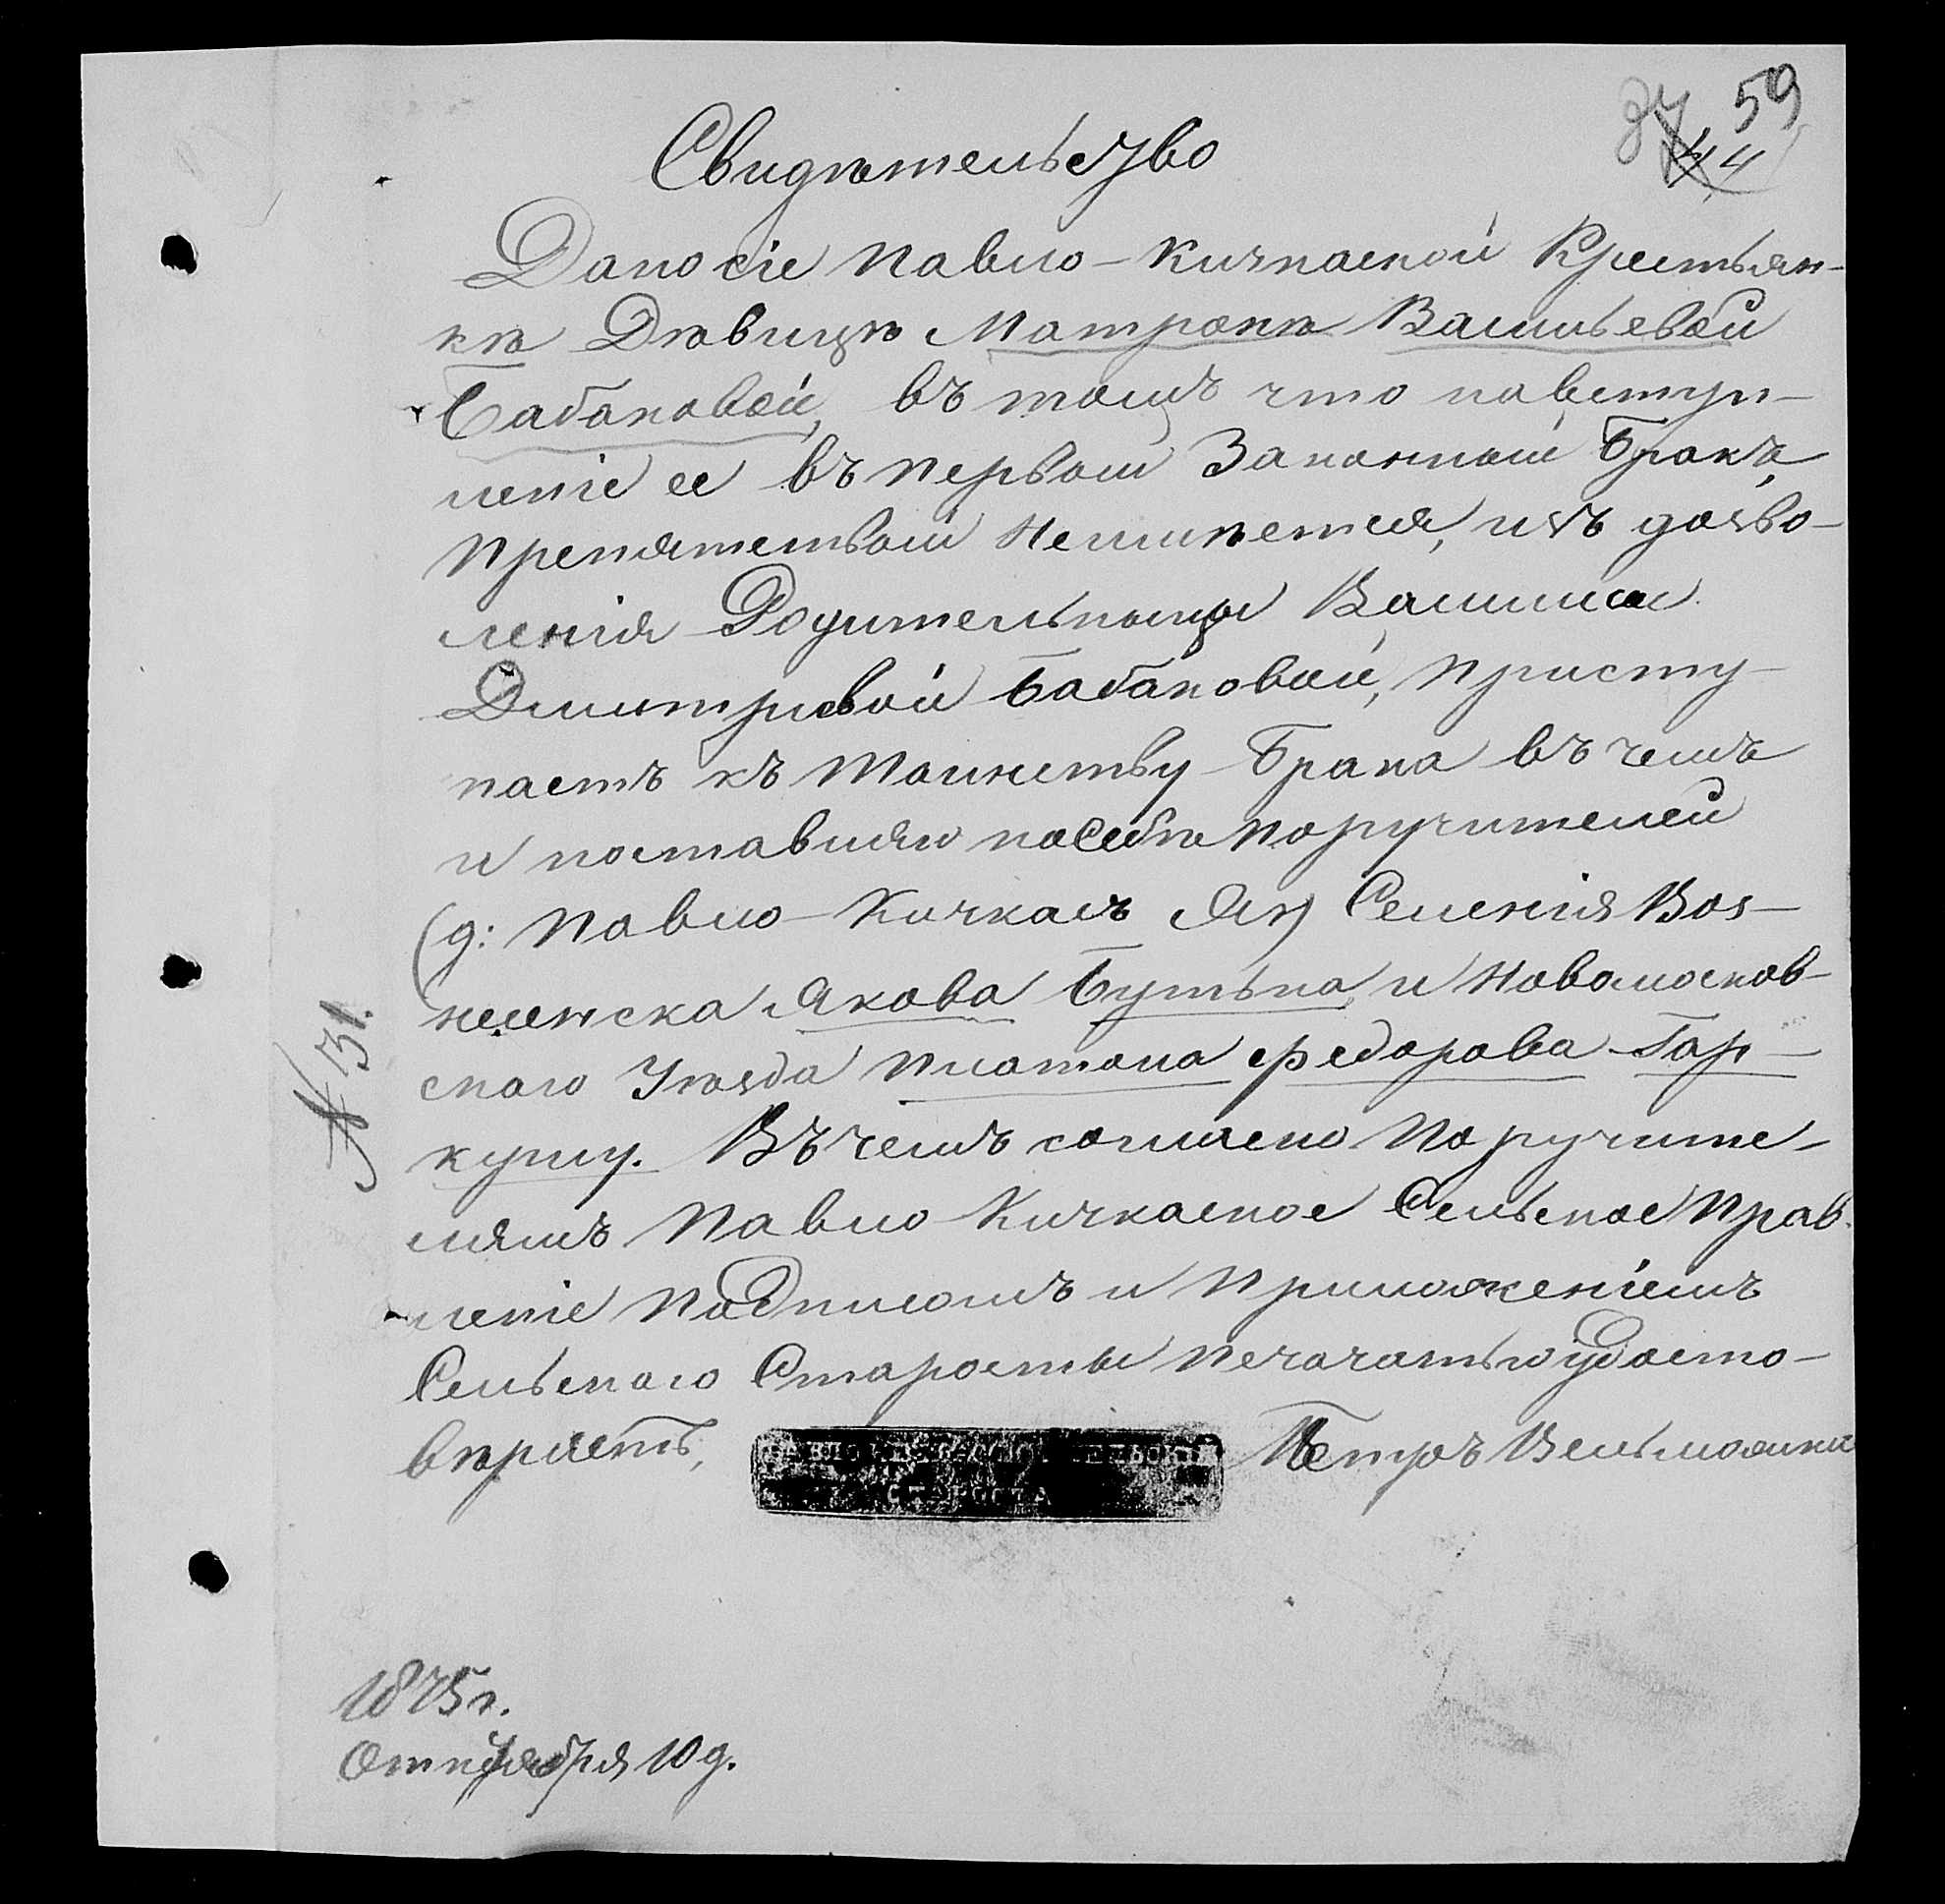 59
37
44
Свидѣтельство
Дано сіе Павло-Кичкаской Крестьян-
кѣ Дѣвицѣ Матронѣ Васильевой
Бабаковой, въ томъ что на вступ-
леніе ее въ первой Законной Бракъ,
Препятствій Неимѣется, изъ дозво-
ленія Родительницы
Дмитріевой Бабаковой, присту-
паетъ къ Таинству Брака въ чемъ
и поставляю посебѣ поручителей
(д: Павло-Кичкасъ Як) Селенія Воз-
несенска Якова Бутька, и Новомосков-
скаго Уѣзда Платона Федорова Гар-
кушу. Въ чемъ согласно Поручите-
лямъ Павло-Кичкаское Сельское Прав-
леніе Подписомъ и Приложеніемъ
Сельскаго Старосты печатью удосто-
вѣряетъ,
СТАРОСТА
Петръ
№ 31.
1875 г.
Октября 10 д.